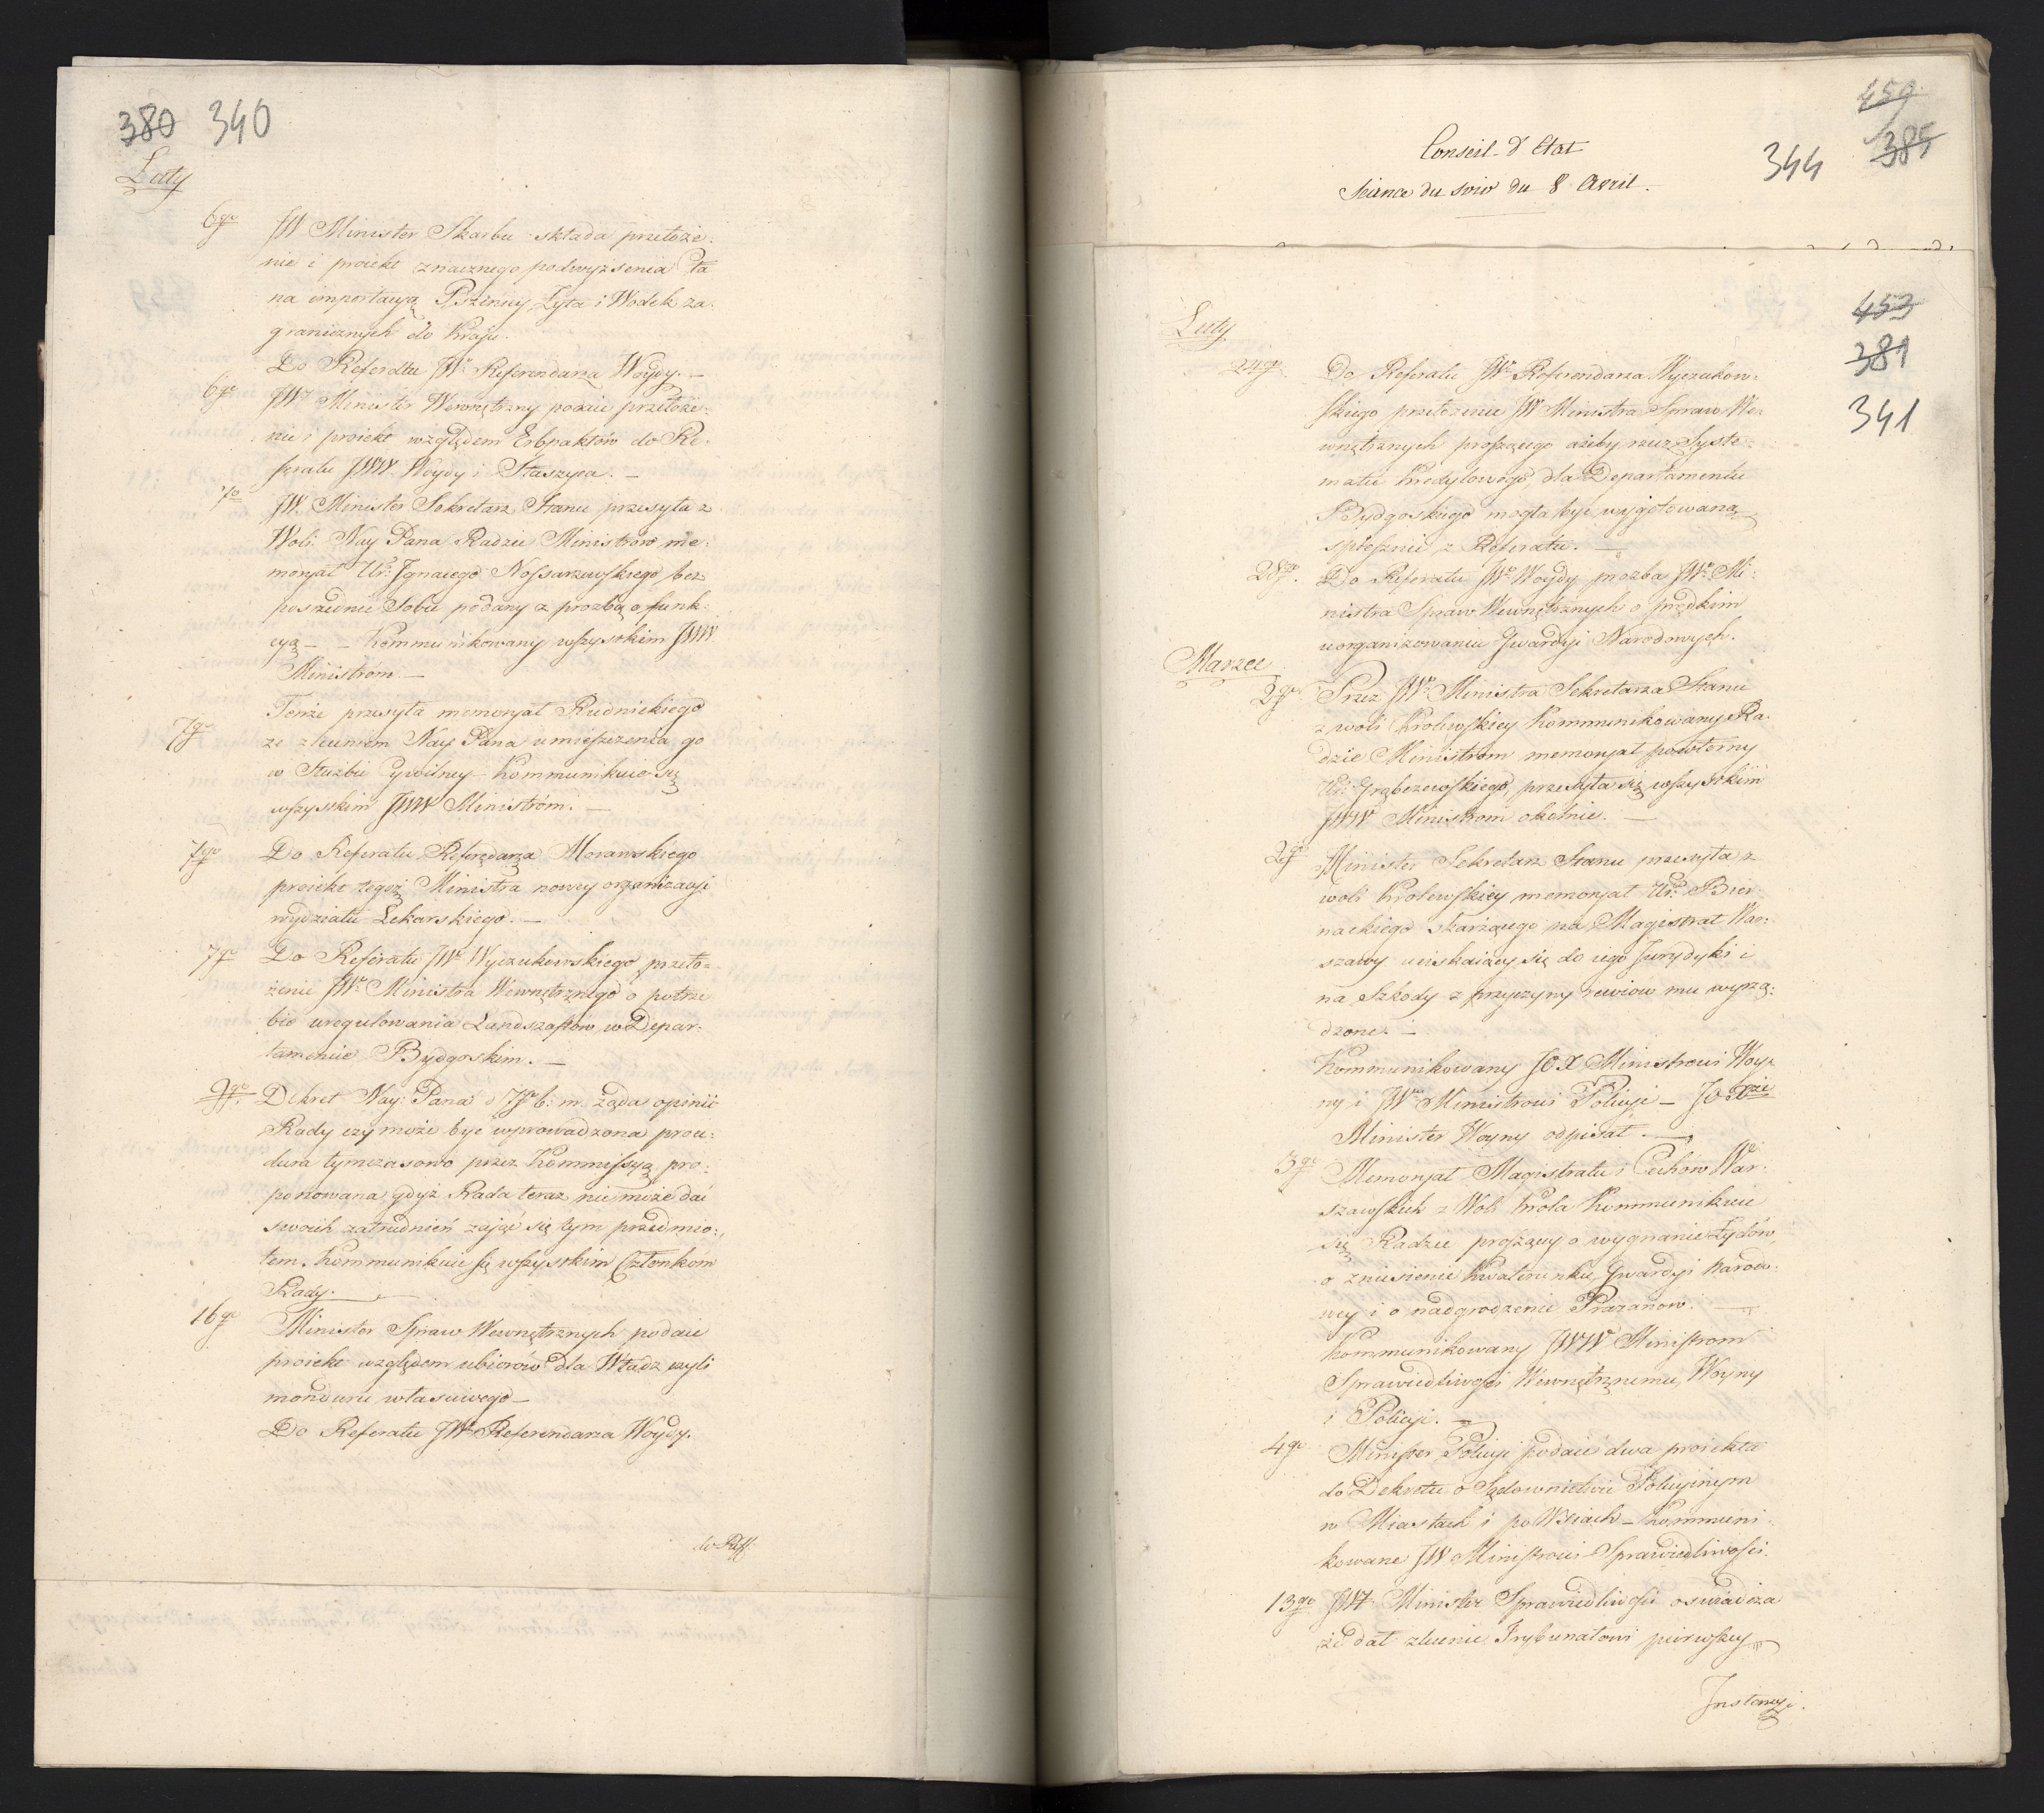 380 340
Luty
6go JW Minister Skarbu składa przełoże:
nie i proiekt znacznego podwyższenia Cła
na importacyą Pszenicy, Żyta i Wodek za:
granicznych do Kraju.
Do Referatu JWo Referendarza Woydy. —
6go JWy Minister Wewnętrzny podaie przełoże:
nie i proiekt względem Erbpaktów do Re:
feratu JWW. Woydy i Staszyca. —
7o JW. Minister Sekretarz Stanu przesyła z
Woli Nay Pana Radzie Ministrow me:
moryał Ur: Ignacego Nossarzewskiego bez
pośrednie Sobie podany z prozbą o funk:
cyą — — Kommunikowany wszystkim JWW
Ministróm. —
7go Tenże przesyła memoryał Rudnickiego
ze zleceniem Nay Pana umieszczenia go
w Służbie Cywilney — Kommunikuie się
wszystkim JWW Ministróm. —
7go Do Referatu Referędarza Morawskiego
proiekt tegoż Ministra nowey organizacyi
wydziału Lekarskiego. —
7go Do Referatu JWo Wyczukowskiego przeło=
żenie JWo Ministra Wewnętrznego o potrze
bie uregulowania Landszaftów w Depar:
tamencie Bydgoskim. —
9go Dekret Nay: Pana d 7go b: m. żąda opinii
Rady czy może być wprowadzona proce:
dura tymczasowo przez Kommissyą pro:
ponowana, gdyż Rada teraz nie może dla
swoich zatrudnień zająć się tym przedmio:
tem. Kommunikuie się wszystkim Członkóm
Rady. —
16go Minister Spraw Wewnętrznych podaie
proiekt względem ubiorów dla Władz czyli
monduru właściwego —
Do Referatu JWo Referendarza Woydy.
do Reff.
459.
Conseil d'Etat
344 385
Séance du soir du 8 Avril.
453
Luty
381
341
24go Do Referatu JWo Referendarza Wyczukow=
skiego przełożenie JW Ministra Spraw We:
wnętrznych proszącego ażeby rzecz Syste=
matu Kredytowego dla Departamentu
Bydgoskiego mogła być wygotowaną
spiesznie z Referatu. —
28go. Do Referatu JWo Woydy prozba JWo Mi:
nistra Spraw Wewnętrznych o prędkim
uorganizowaniu Gwardyi Narodowych.
Marzec
2go Przez JWo Ministra Sekretarza Stanu
z woli Krolewskiey Kommunikowany Ra:
dzie Ministrom memoryał powtorny
Ur: Grąbczewskiego, przesyła się wszystkim
JWW Ministrom okolnie. —
2go Minister Sekretarz Stanu przesyła z
woli Krolewskiey memoryał Ur: Bier
nackiego skarżącego na Magistrat War:
szawy uciskaiący się do iego Jurydyki i
na Szkody z przyczyny rewiow mu wyrzą:
dzone. —
Kommunikowany JOX Ministrowi Woy:
ny i JWmu Ministrowi Policyi — JO Xże
Minister Woyny odpisał. —
3go Memoryał Magistratu i Cechów War:
szawskich z Woli Króla Kommunikuie
się Radzie proszący o wygnanie Żydów,
o zniesienie Kwaterunku Gwardyi Narodo:
wey i o nadgrodzenie Prażanow. —
Kommunikowany JWW Ministrom
Sprawiedliwości Wewnętrznemu, Woyny
i Policyi. —
4go Minister Policyi podaie dwa proiekta
do Dekretu o Sądownictwie Policyinym
w Miastach i po Wsiach — Kommuni:
kowane JW Ministrowi Sprawiedliwości.
13go JWy Minister Sprawiedliwości oświadcza
iż dał zlecenie Trybunałowi pierwszey
Instancyi.